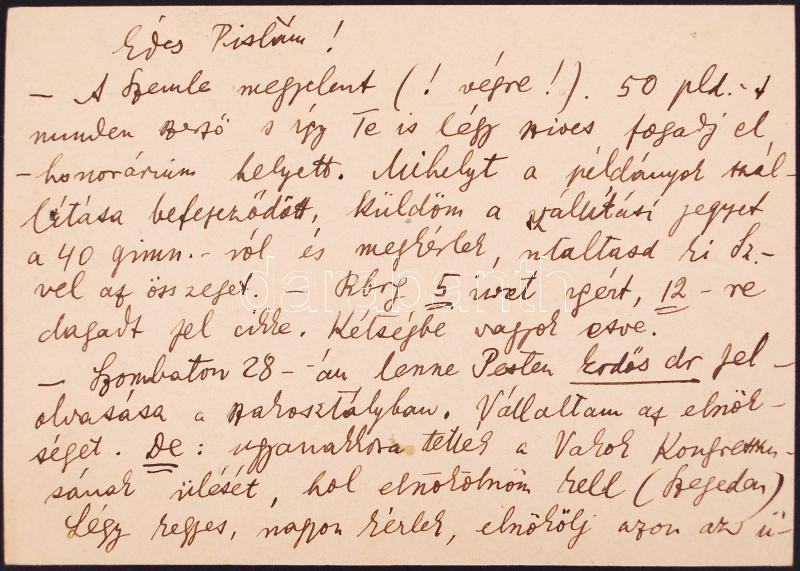 Édes Pistám!
— A Szemle megjelent (! végre!). 50 pld.-t
minden szerző s így Te is légy szives fogadj el
- honorárium helyett. Mihelyt a példányok szál-
lítása befejeződött, küldöm a szállítási jegyet
a 40 gimn.-ról és megkérlek, utaltasd ki Sz.-
vel az összeget. — Rbrg 5 ívet igért, 12-re
dagadt fel cikke. Kétségbe vagyok esve.
— Szombaton 28-án lenne Pesten Erdős dr fel-
olvasása a szakosztályban. Vállaltam az elnök-
séget. De: ugyanakkora tették a Vakok Kongresszu-
sának ülését, hol elnökölnöm kell (Szegeden)
Légy kegyes, nagyon kérlek, elnökölj azon az ü-
darabanth